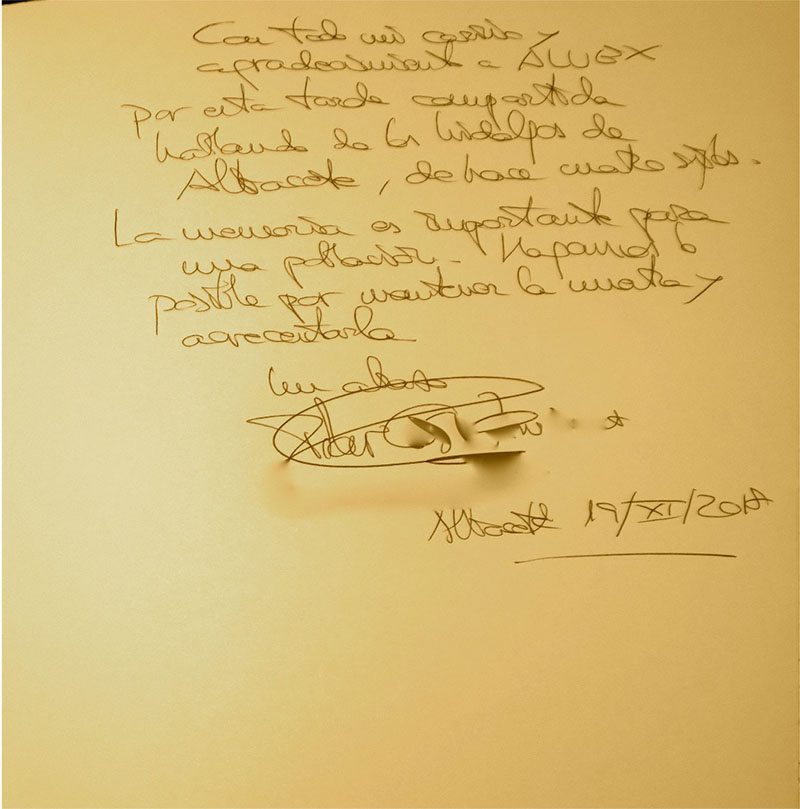 Con todo mi cariño y
agradecimiento a AWEX
por esta tarde compartida
hablando de los hidalgos de
Albacete, de hace cuatro siglos.
La memoria es importante para
una población. Hagamos lo
posible por mantener la nuestra y
acrecentarla
Un abrazo
Pilar
Albacete 19/XI/201